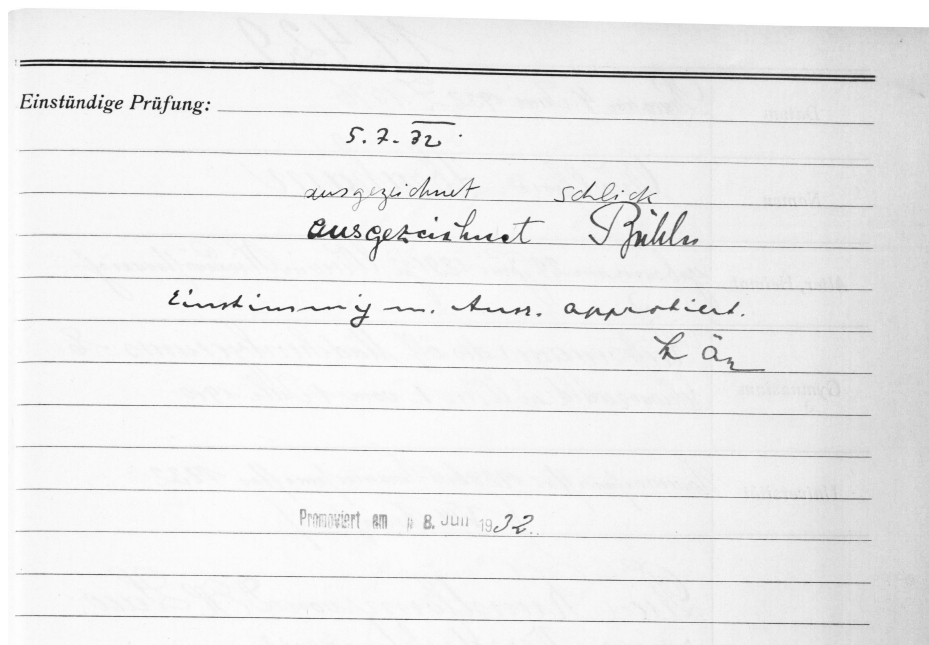 Einstündige Prüfung:
5.7.32.
ausgezeichnet Schlick
ausgezeichnet Bühler
Einstimmig m. Ausz. approbiert.
Promoviert am 8. Juli 1932.